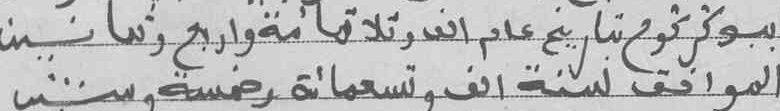 بتاريخ عام الف وثلاثمائة واربع وثمانين
الموافق لسنة الف وتسعمائة وخمسة وستين